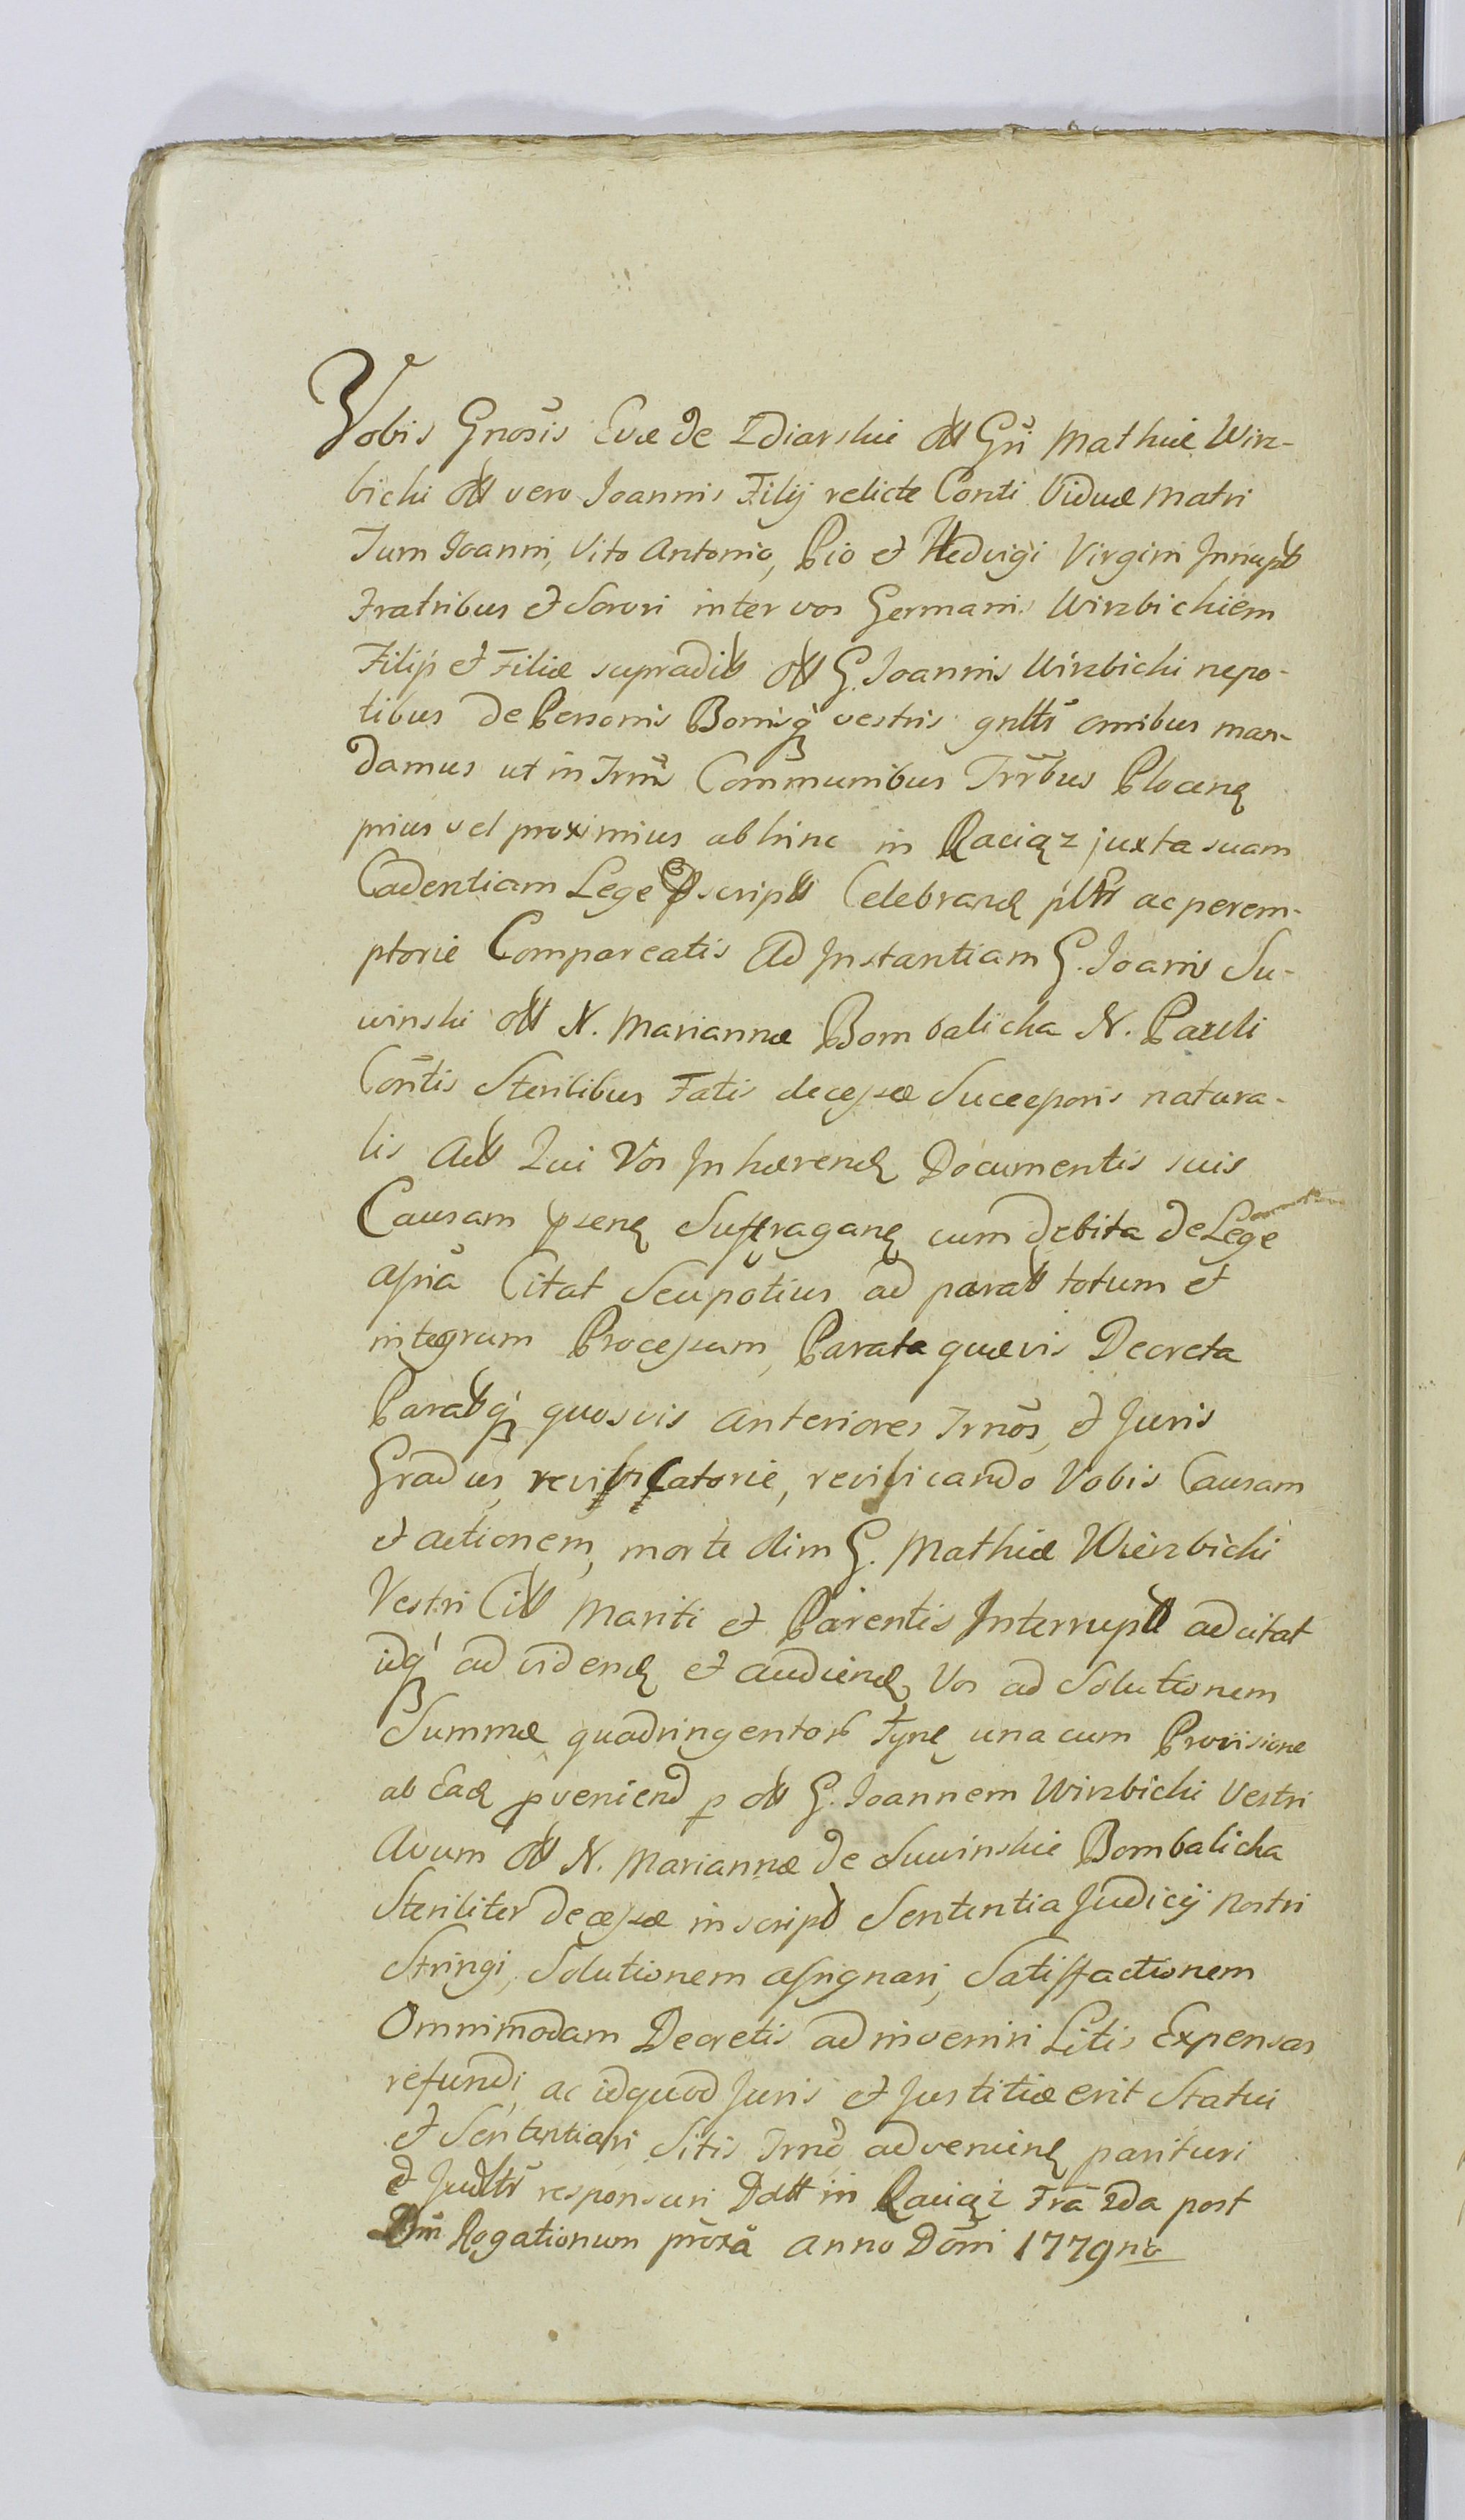 Vobis Gnosis Evæ de Zdiarskie olt Gñi Mathiæ Wirz-
bicki olt vero Joannis Filij relictæ Conti Viduæ Matri
Tum Joanni, Vito Antonio, Pio et Hedvigi Virgini Innupt
Fratribus et Sorori inter vos Germanis Wirzbickiem
Filijs et Filiæ supradict olt G. Joannis Wirzbicki nepo-
tibus de Personis Bonisq vestris gnltr omnibus man-
damus ut in Trmis Communibus Trrbus Plocen
prius vel proximius abhinc in Raciąz juxta suam
Cadentiam Lege pscript Celebrand pltr ac perem-
ptorie Compareatis Ad Instantiam G. Joanis Su-
winski olt N. Mariannæ Bombalicka N. Pauli
Contis Sterilibus Fatis decessæ Successoris natura-
lis Act Qui Vos Inhærend Documentis suis
Causam psen Suffragan cum debita de Lege
assña Citat Seu potius ad parat totum et
integrum Processum, Parata quævis Decreta
Paratq quosvis anteriores Trnos, et Juris
Gradus, revificatorie, revificando Vobis Causam
et actionem, morte olim G. Mathiæ Wierzbicki
Vestri Cit Mariti et Parentis Interrupt adcitat
idq ad vidend et audiend Vos ad Solutionem
Summæ quadringentor Tynf una cum Provisione
ab Ead pveniend p olt G. Joannem Wirzbicki Vestri
Avum olt N. Mariannæ de Suwinskie Bombalicka
Steriliter decessæ inscript Sententia Judicij Nostri
Stringi, Solutionem assignari, Satisfactionem
Omnimodam Decretis adinveniri Litis Expensas
refundi, ac id quod Juris et Justitiæ erit Statui
et Sententiari Sitis Trno advenien parituri
et Judltr responsuri Datt in Raciąz Fra 2da post
Dm Rogationum proxa Anno Domi 1779no